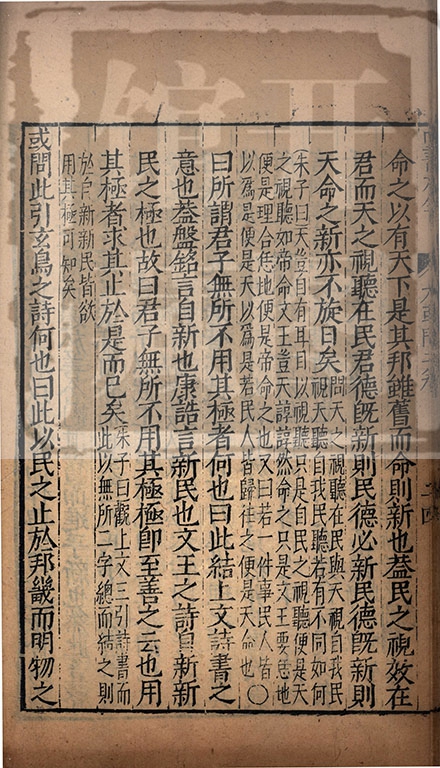 命之以有天下是其邦雖舊而命則新也葢民之視效在
君而天之視聽在民君德旣新則民德必新民德旣新則
天命之新亦不旋日矣
問天之視聽在民與天視自我民
視天聽自我民聽若有不同如何
朱子曰天豈自有耳目以視聽只是自民之視聽便是天
之視聽如帝命文王豈天諄諄然命之只是文王要恁地
便是理合恁地便是帝命之也又曰若一件事民人皆
以為是便是天以為是若民人皆歸往之便是天命也
○
曰所謂君子無所不用其極者何也曰此結上文詩書之
意也葢盤銘言自新也康誥言新民也文王之詩自新新
民之極也故曰君子無所不用其極極卽至善之云也用
其極者求其止於是而已矣
朱子曰觀上文三引詩書而
此以無所二字總而結之則
於自新新民皆欲
用其極可知矣
或問此引玄鳥之詩何也曰此以民之止於邦畿而明物之